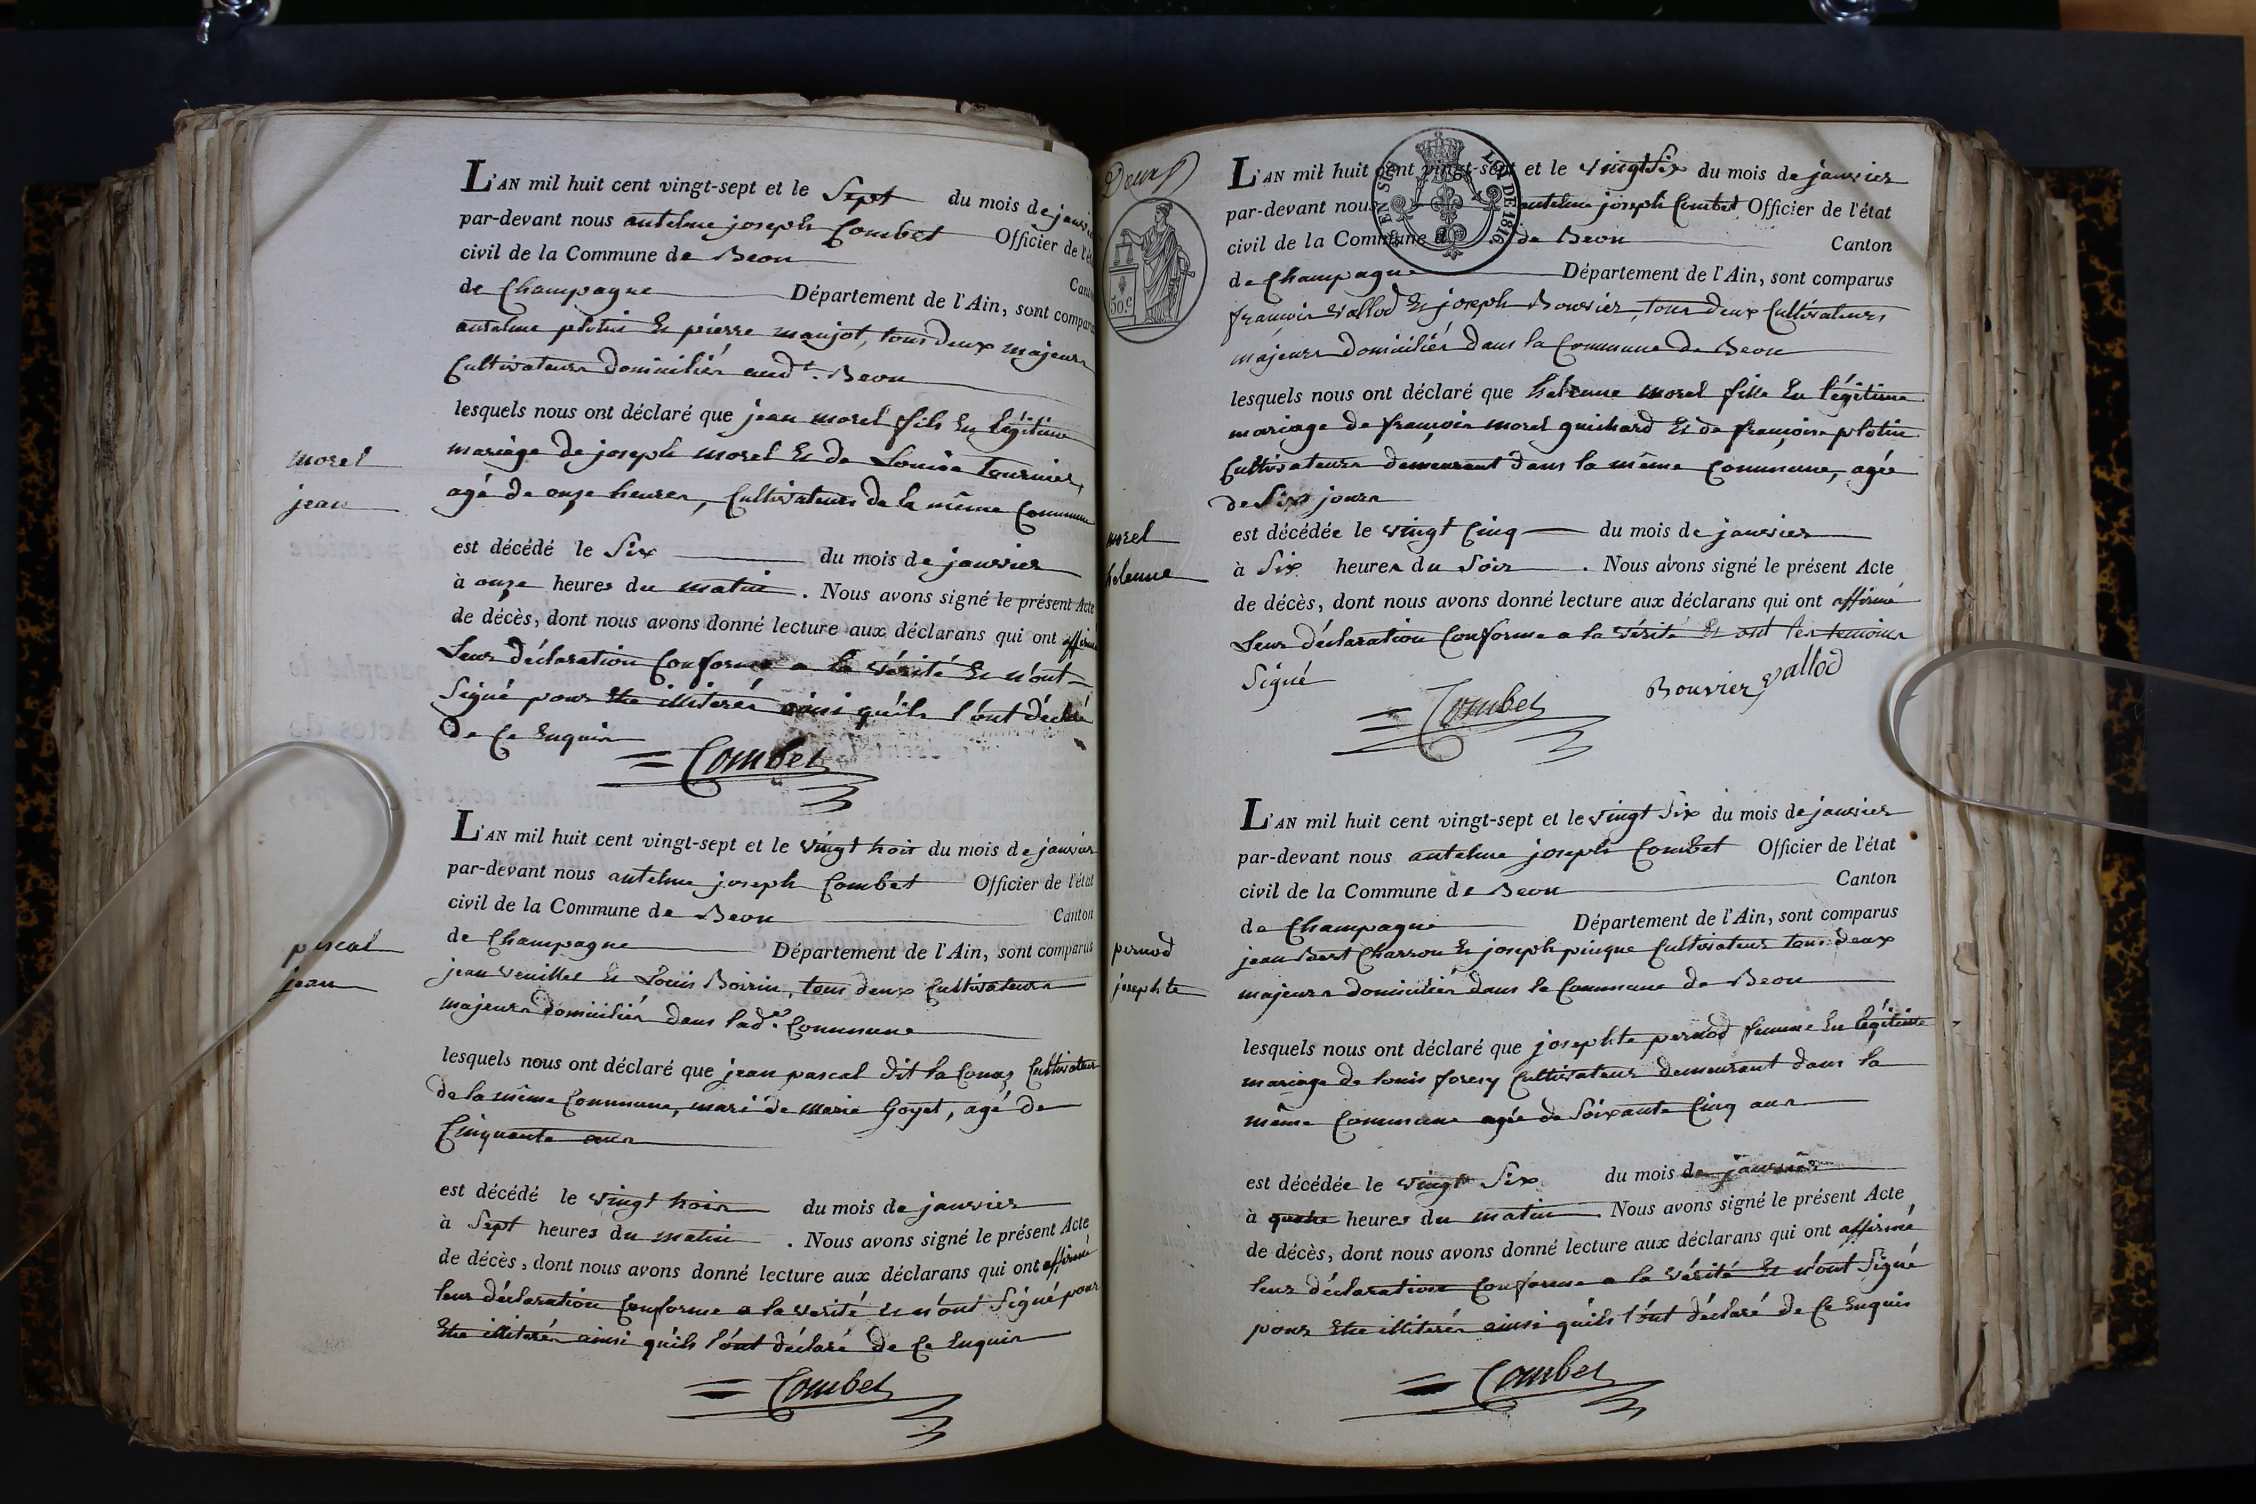 L'AN mil huit cent vingt-sept et le Sept du mois de janvier
par-devant nous antelme joseph Combet Officier de l'état
civil de la Commune de Beon
Canton
de Champagne Département de l'Ain, sont comparus
antelme plotin et pierre maujot, tous deux majeurs
Cultivateurs domiciliés aud.t Beon
lesquels nous ont déclaré que jean morel fils En légitime
morel
jean
mariage de joseph morel Et de Louise Tournier,
agé de onze heures, Cultivateurs de la même Commune
est décédé le Six du mois de janvier
à onze heures du matin . Nous avons signé le présent Acte
de décès, dont nous avons donné lecture aux déclarans qui ont affirmé
Leur déclaration Conforme a la vérité Et n'ont
Signé pour Etre illiterés ainsi qu'ils l'ont déclaré
de Ce Enquis
Combet
L'AN mil huit cent vingt-sept et le vingt trois du mois de janvier
par-devant nous antelme joseph Combet Officier de l'état
civil de la Commune de Beon
Canton
de Champagne Département de l'Ain, sont comparus
pascal
jean
jean veuillet et Louis Boirin, tous deux Cultivateurs
majeurs domiciliés dans lad.e Commune
lesquels nous ont déclaré que jean pascal dit la Cultivateur
de la même Commune, mari de marie Goyet, agé de
Cinquante ans
est décédé le vingt trois du mois de janvier
à Sept heures du matin . Nous avons signé le présent Acte
de décès, dont nous avons donné lecture aux déclarans qui ont affirmé
leur déclaration Conforme a la verité et n'ont Signé pour
Etre illiterés ainsi qu'ils l'ont déclaré de Ce Enquis
Combet
50.c
EN SUS
LOI DE 1816
L'AN mil huit cent vingt-sept et le vingt Six du mois de janvier
par-devant nous antelme joseph Combet Officier de l'état
civil de la Commune de Beon Canton
de Champagne Département de l'Ain, sont comparus
françois vallod Et joseph Bouvier, tous deux Cultivateurs
majeurs domiciliés dans la Commune de Beon
lesquels nous ont déclaré que helenne morel fille En légitime
mariage de françois morel guichard Et de françoise plotin
Cultivateurs demeurant dans la même Commune, agée
de Six jours
morel
helenne
est décédée le vingt Cinq du mois de janvier
à Six heures du Soir . Nous avons signé le présent Acte
de décès, dont nous avons donné lecture aux déclarans qui ont affirmé
Leur déclaration Conforme a la vérité Et ont les temoins
Signé
Combet
Bouvier
vallod
L'AN mil huit cent vingt-sept et le vingt Six du mois de janvier
par-devant nous antelme joseph Combet Officier de l'état
civil de la Commune de Beon Canton
de Champagne Département de l'Ain, sont comparus
pernod
josephte
jean Bert Charron Et joseph pingue Cultivateur tous deux
majeurs domiciliés dans la Commune de Beon
lesquels nous ont déclaré que josephte pernod femme En légitime
mariage de louis Cultivateur demeurant dans la
même Commune agée de Soixante Cinq ans
est décédée le vingt Six du mois de janvier
à quatre heures du matin . Nous avons signé le présent Acte
de décès, dont nous avons donné lecture aux déclarans qui ont affirmé
leur déclaration Conforme a la vérité Et n'ont Signé
pour Etre illiterés ainsi qu'ils l'ont déclaré de Ce Enquis
Combet